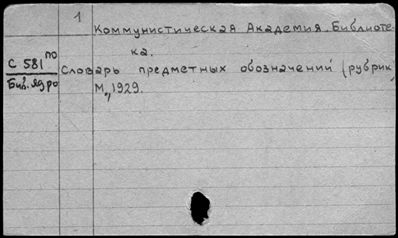 1
Коммунистическая Академия. Библиоте-
ка.
С 581 по
Биб. ядро
Словарь предметных обозначений (рубрик)
М., 1929.